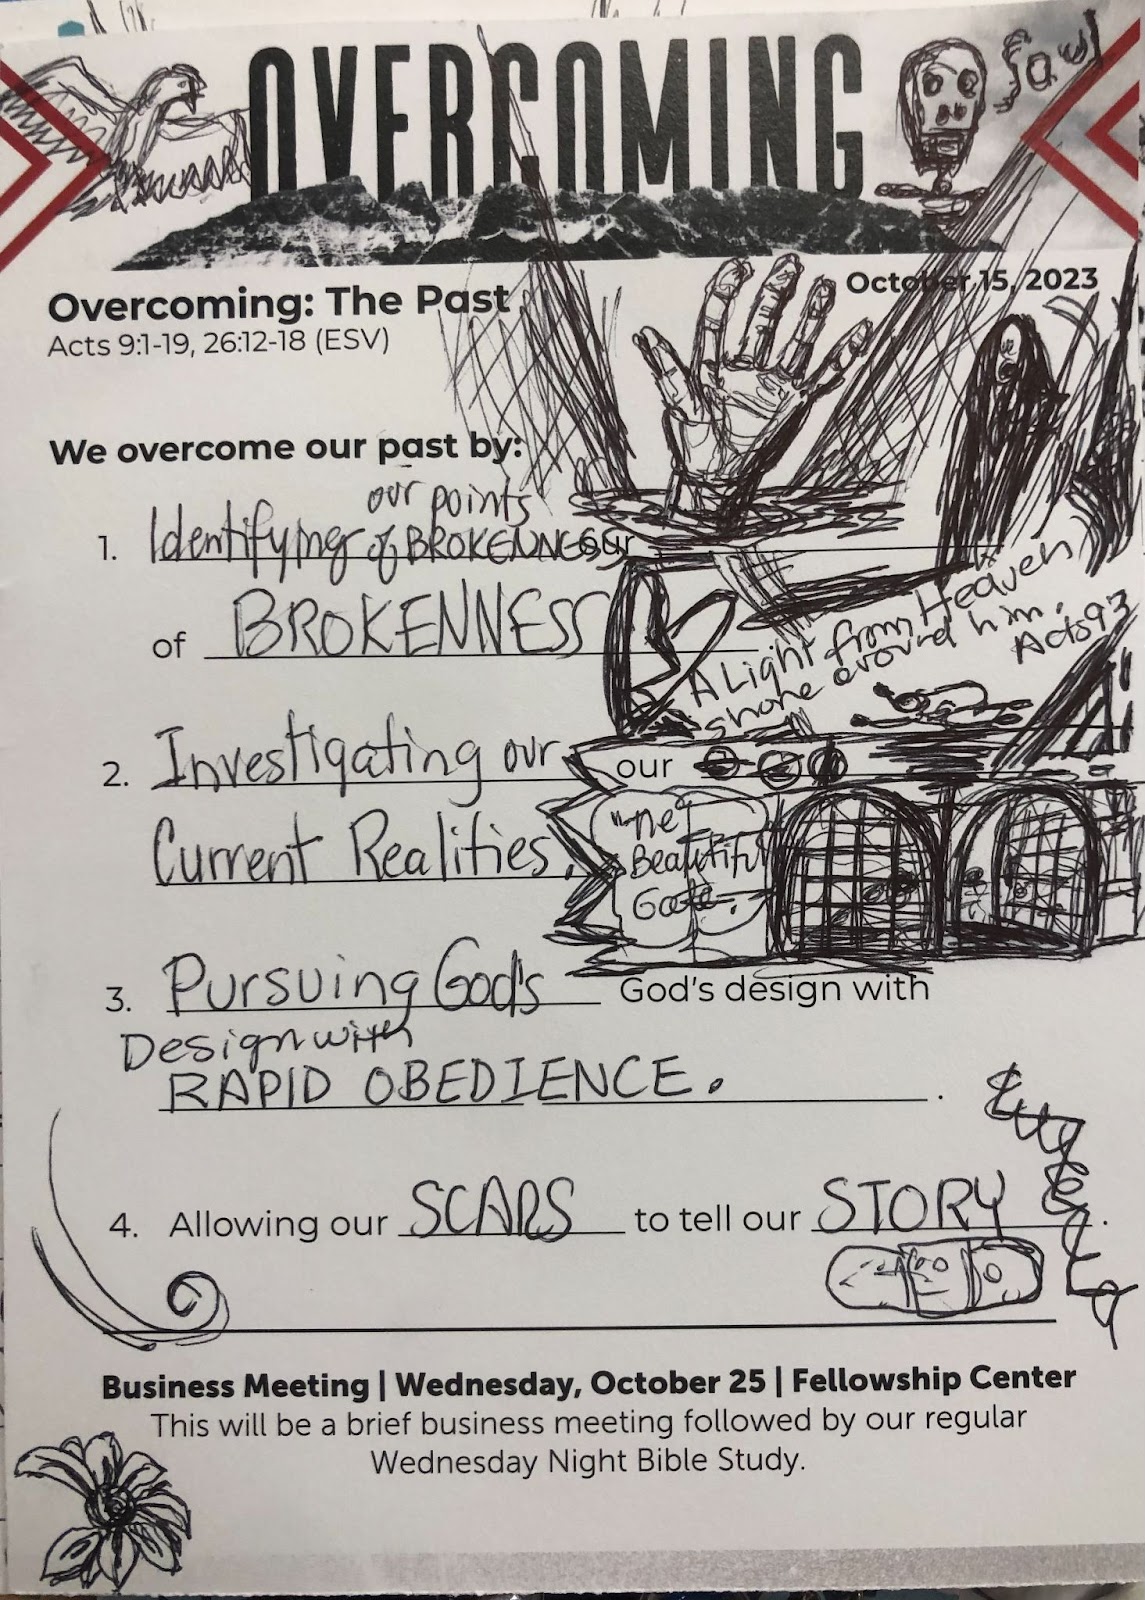 OVERCOMING
Saul
October 15, 2023
Overcoming: The Past
Acts 9:1-19, 26:12-18 (ESV)
We overcome our past by:
our points
1. Identifying of BROKENNESS our
of BROKENNESS
A Light from Heaven
shone around him.
Acts 9 3
2. Investigating our our
Current Realities.
"The
Beautiful
Gate.
3. Pursuing God's God's design with
Design with
RAPID OBEDIENCE. .
4. Allowing our SCARS to tell our STORY .
Business Meeting | Wednesday, October 25 | Fellowship Center
This will be a brief business meeting followed by our regular
Wednesday Night Bible Study.